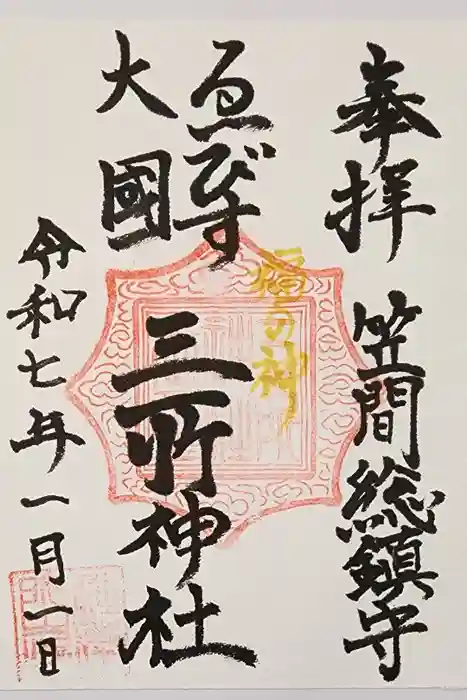 奉拝 笠間総鎮守
福の神
ゑびす
大國
三所神社
令和七年一月一日